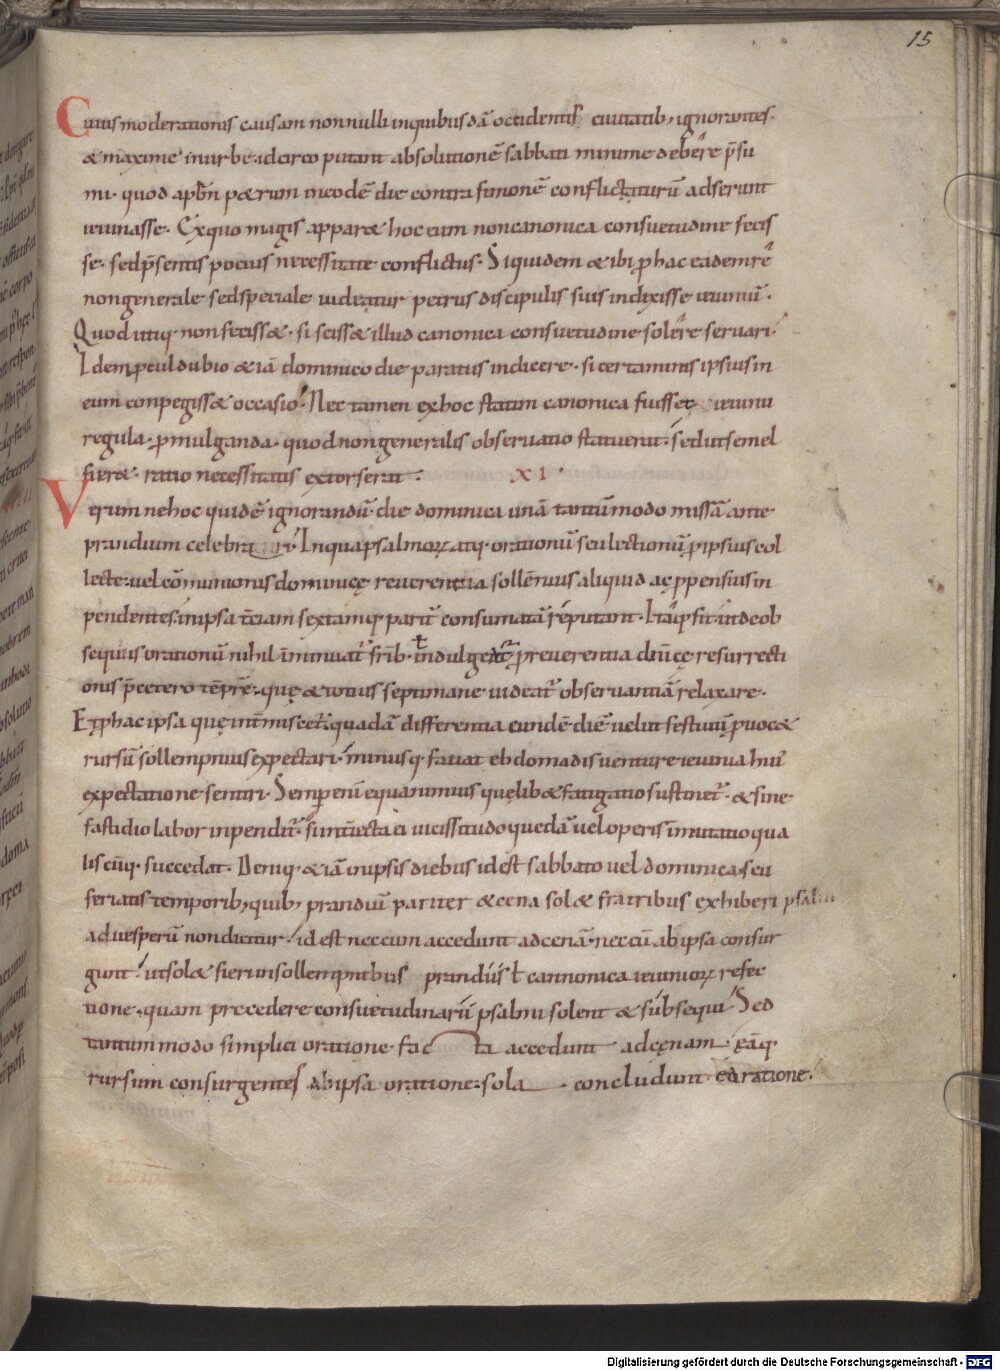 15
Cuius moderationis causam nonnulli inquibusdā occidentis ciuitatib; ignorantes.
& maxime inurbe idcirco putant absolutionē sabbati minime debere p̄su
mi. quod apłm p&rum ineodē die contra simonē conflictaturū adserunt
ieiunasse. Ex quo magis appar& hoc eum noncanonica consuetudine fecis
se. sed p̄sentis pocius necessitate conflictus. Siquidem & ibi ꝓ hac eadem rē
nongenerale sed speciale uideatur petrus discipulis suis indixisse ieiuniū.
Quod utiq; non feciss&. si sciss& illud canonica consuetudine solere seruari.
Idem ꝓculdubio & iā dominico die paratus indicere. si certaminis ipsius in
eum conpegiss& occasio. Nec tamen ex hoc statim canonica fuisset ieiunii
regula ꝓmulganda. quod non generalis obseruatio statuerat. sed ut semel
fier&. ratio necessitatis extorserat. XI.
Verum ne hoc quidē ignorandū. die dominica unā tantūmodo missā ante
prandium celebrari. In qua psalmoꝝ atq; orationū seu lectionū ꝓ ipsius col
lecte. uel cōmunionis dominicę reuerentia sollēnius aliquid ac ꝓpensius in
pendentes. in ipsa t̄ciam sextamq; parit̄ consumatā reputant. Ita q; fit ut de ob
sequiis orationū nihil īminuat̄ frīb. ł indulget̄ ꝓ reuerentia dn̄icę resurrecti
onis p̄ cetero tēpr̄e. quę & totius septimane uideat̄ obseruantiā relaxare.
Et ꝓ hac ipsa quę int̄miscet̄ quadā differentia eundē diē uelut festiuū ꝓuoc&
rursū sollempnius expectari. minusq; faciat ebdomadis uenture ieiunia huiꝰ
expectatione sentiri. Semꝑ enī equanimius quęlib& fatigatio sustinet̄. & sine
fastidio labor inpendit̄. si int̄iecta ei uicissitudo quedā uel operis īmutatio qua
lis cūq; succedat. Deniq; & iā in ipsis diebus id est sabbato uel dominica. seu
feriatis temporib; quib; prandiū pariter & cena sol& fratribus exhiberi psalmi
ad uesperū non dicitur. id est nec cum accedunt ad cenā. nec cū ab ipsa consur
gunt. ut sol& fieri in sollempnibus prandiis ł cannonica ieiunioꝝ refec
tione. quam precedere consuetudinarii psalmi solent & subsequi. Sed
tantummodo simplici oratione facta accedunt ad cęnam. eāq;
rursum consurgentes ab ipsa oratione. sola concludunt